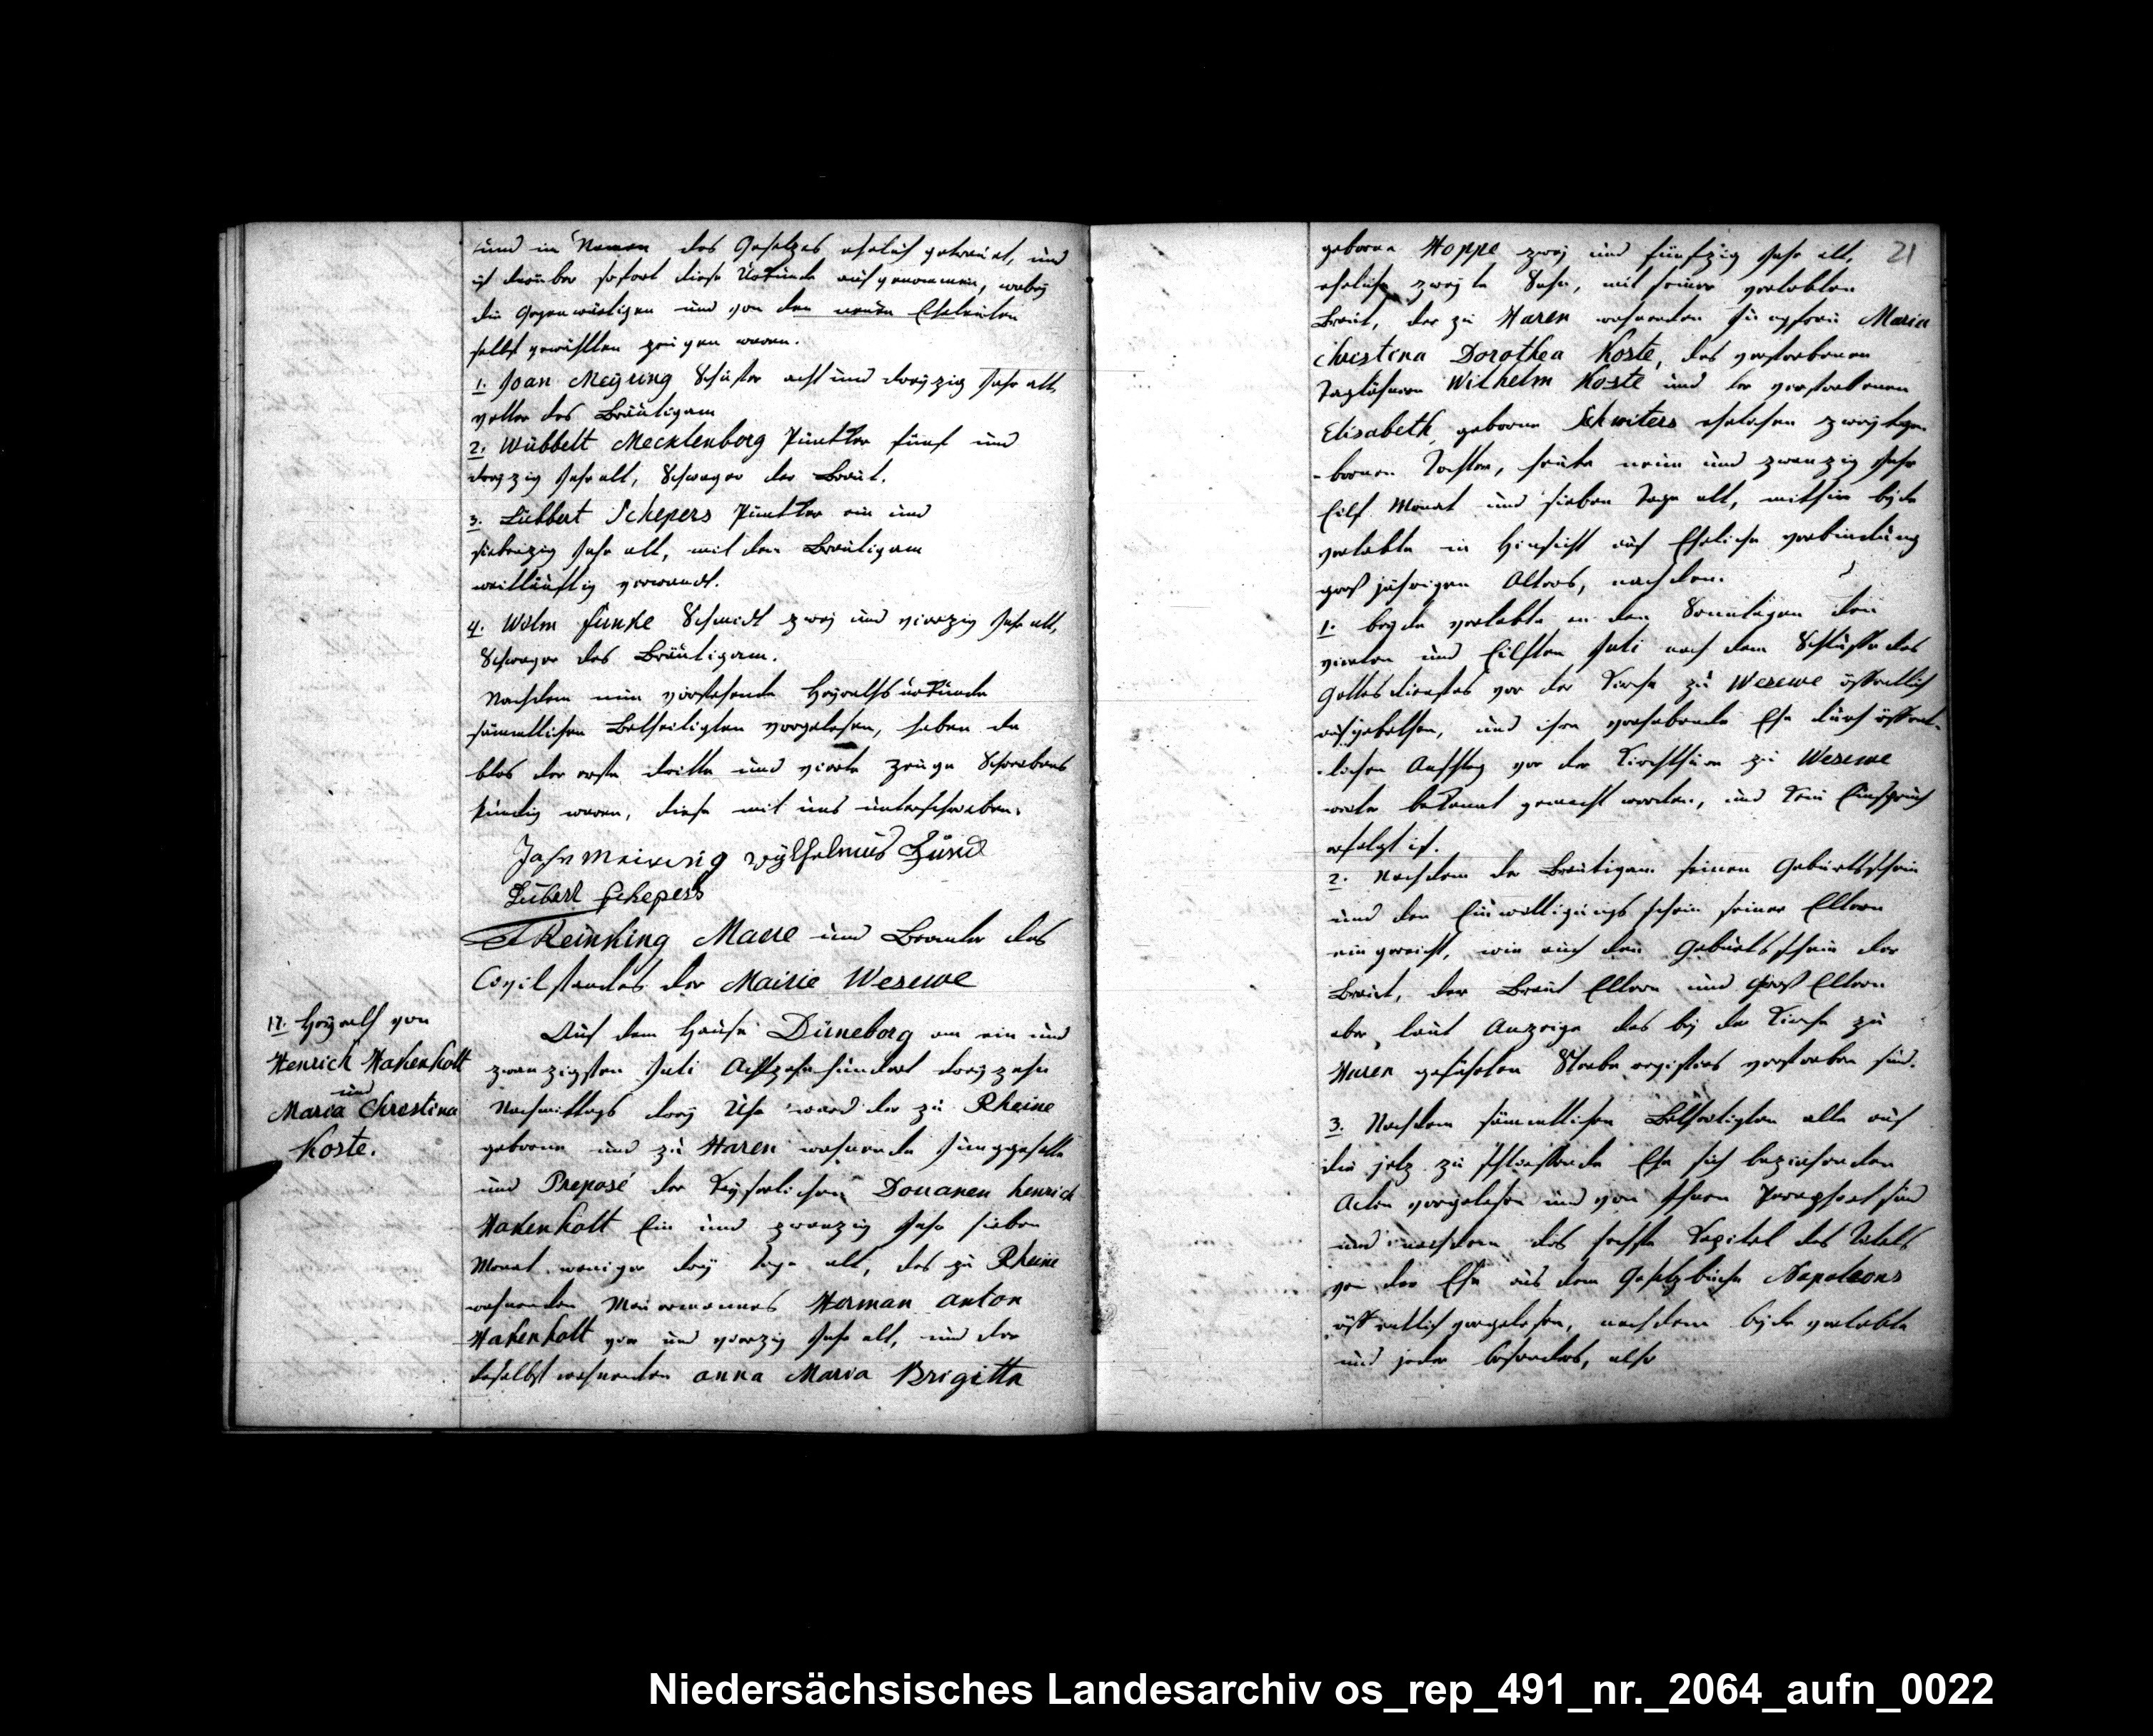 und im Namen des Gesetzes ehelich getrauet, und
ist darüber sofort diese Urkunde aufgenommen, wobey
die Gegenwärtigen und von den neuen Eheleuten
selbst gewählten zeugen waren.
1. Joan Meyring Schuster acht und dreyzig Jahr alt,
vetter des Bräutigam
2. Wübbelt Mecklenborg Püntker fünf und
dreyzig Jahr alt, Schwager der Braut.
3. Lübbert Schepers Püntker ein und
siebenzig Jahr alt, mit dem Bräutigam
weitläuftig verwandt.
4. Wilm Funke Schmidt zwey und vierzig Jahr alt,
Schwager des Bräutigam.
Nachdem nun vorstehende Heyrathsurkunde
sämmtlichen Betheiligten vorgelesen, haben da
blos der erste dritte und vierte zeuge Schreibens
kündig waren, diese mit uns unterschrieben.
Jahn Meiring Wylhelmus Funck
Lübert Schepers
Reinking Maire und Beamter des
Civilstandes der Mairie Wesewe
17. Heyrath von
Henrich Hakenholt
und
Maria Christina
Koste.
Auf dem Hause Düneborg am ein und
zwanzigsten Juli Achtzehnhundert dreyzehn
Nachmittags drey Uhr ward der zu Rheine
geborne und zu Haren wohnende Junggeselle
und Preposé der Keyserlichen Douanen henrich
Hakenholt Ein und zwanzig Jahr sieben
Monat weniger drey Tage alt, des zu Rheine
wohnenden Mauermannes Herman Anton
Hakenholt vier und vierzig Jahr alt, und der
daselbst wohnenden Anna Maria Brigitta
21
geborne Hoppe zwey und fünfzig Jahr alt,
ehelicher zweyte Sohn, mit seiner verlobten
Braut, der zu Haren wohnenden Jungfrau Maria
Christina Dorothea Koste, des verstorbenen
Taglöhners Wilhelm Koste und der verstorbenen
Elisabeth geborne Schwiters ehelichen zweytge-
-bornen Tochter, heute neun und zwanzig Jahr
Eilf Monat und sieben Tage alt, mithin beyde
verlobte in Hinsicht auf Eheliche verbindung
großjährigen Alters, nachdem.
1. beyde verlobte an den Sonntagen den
vierten und Eilften Juli nach dem Schlusse des
Gottesdienstes vor der Kirche zu Wesewe öffentlich
aufgebothen, und ihre vorhabende Ehe durch öffent-
-lichen Anschlag vor der Kirchthüre zu Wesewe
weiter bekannt gemacht worden, und kein Einspruch
erfolgt ist.
2. Nachdem der Bräutigam seinen Geburtsschein
und den Einwilligungsschein seiner Eltern
eingereicht, wie auch den Geburtsschein der
Braut, der Braut Eltern und Groß Eltern
aber laut Anzeige des bey der Kirche zu
Haren geführten Sterberegisters verstorben sind.
3. Nachdem sämmtlichen Betheiligten alle auf
die jetz zu schliessende Ehe sich beziehenden
Acten vorgelesen und von Ihnen Paraphirt sind
und nachdem das sechste Kapitel des Titels
von der Ehe aus dem Gesetzbuche Napoleons
öffentlich vorgelesen, nachdem beyde verlobte
und jeder besonders, also
Niedersächsisches Landesarchiv os_rep_491_nr._2064_aufn_0022